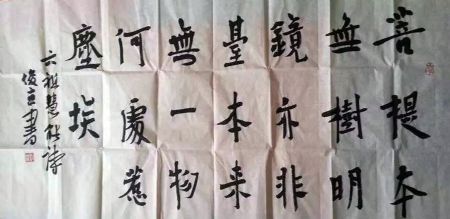 菩提本
無樹明
鏡亦非
臺本来
無一物
何處惹
塵埃
六祖慧能诗
书